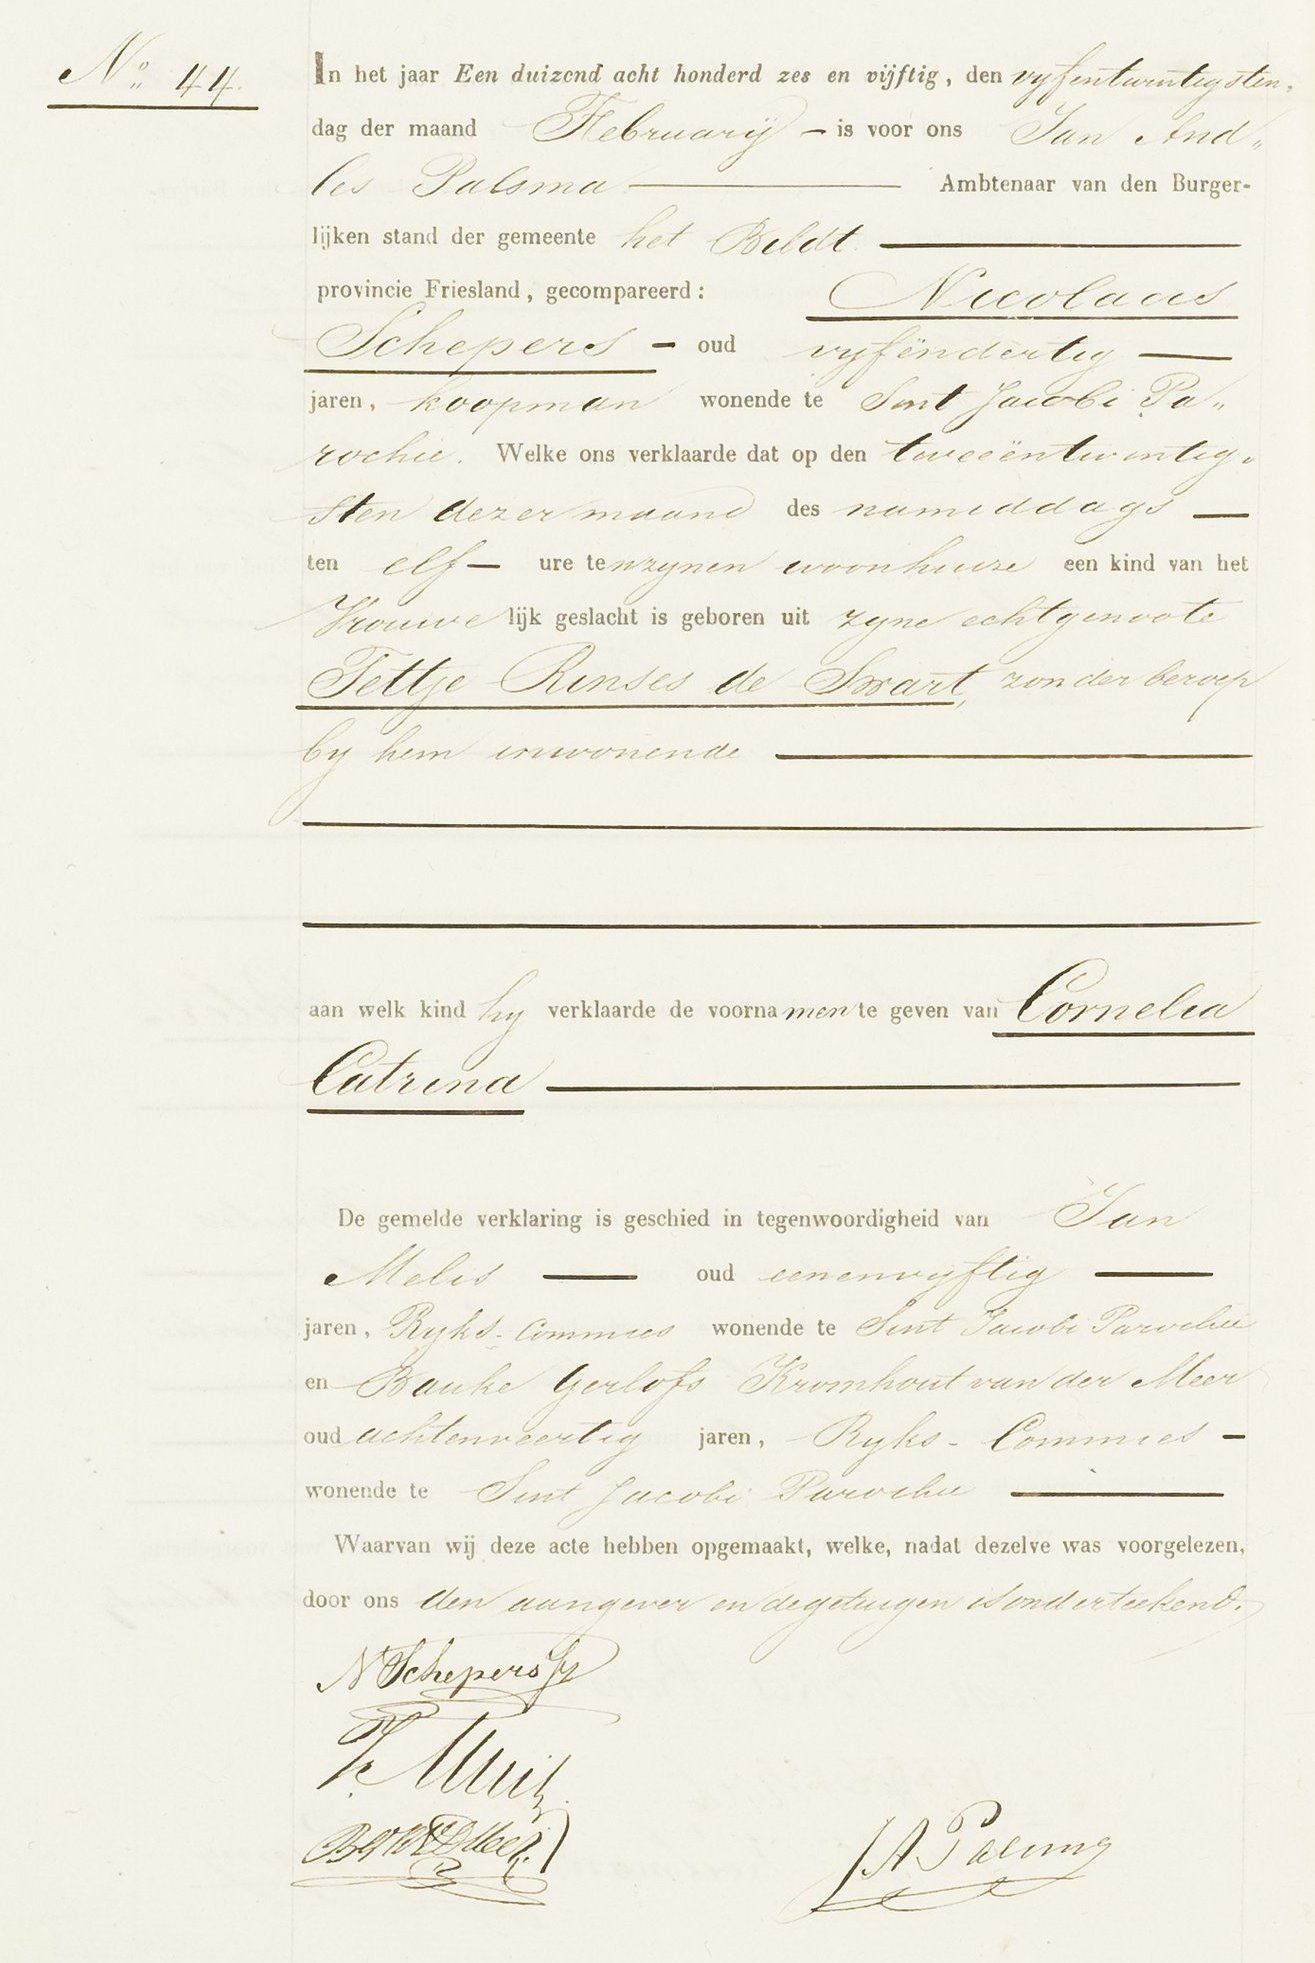 No. 44.
In het jaar Een duizend acht honderd zes en vijftig, den vyfentwintigsten
dag der maand February – is voor ons Jan And„
les Palsma — Ambtenaar van den Burger-
lijken stand der gemeente het Bildt. —
provincie Friesland, gecompareerd: Nicolaas
Schepers – oud vyfëndertig —
jaren, koopman wonende te Sint Jacobi Pa„
rochie. Welke ons verklaarde dat op den tweeëntwintig„
sten dezer maand des namiddags —
ten elf – ure ten zynen woonhuize een kind van het
Vrouwelijk geslacht is geboren uit zyne echtgenoote
Tettje Rinses de Swart, zonder beroep
by hem inwonende —
aan welk kind hy verklaarde de voornamen te geven van Cornelia
Catrina —
De gemelde verklaring is geschied in tegenwoordigheid van Jan
Melis — oud eenenvyftig —
jaren, Ryks-Commies wonende te Sint Jacobi Parochie
en Bauke Gerlofs Kromhout van der Meer
oud achtenveertig jaren, Ryks-Commies –
wonende te Sint Jacobi Parochie —
Waarvan wij deze acte hebben opgemaakt, welke, nadat dezelve was voorgelezen,
door ons den aangever en de getuigen is onderteekend.
N Schepers
JA Palsma